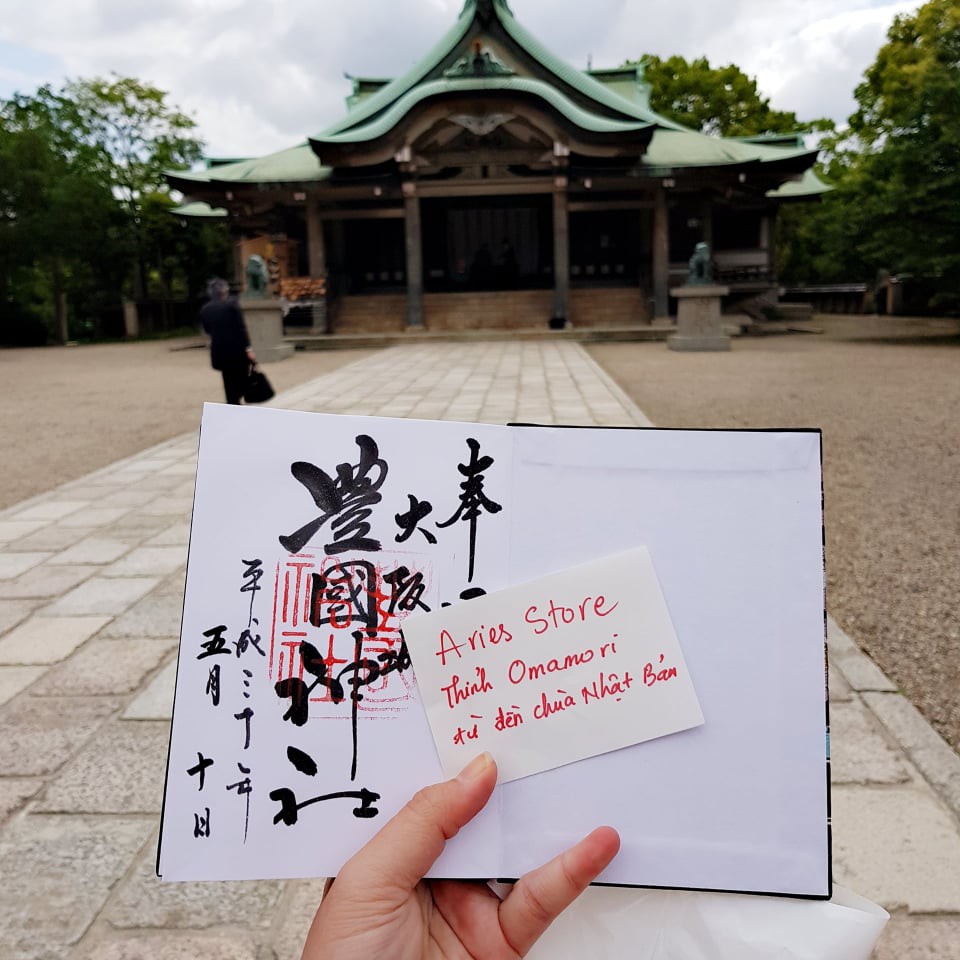 奉
大阪
豊國神社
平成三十年
五月十日
Aries Store
Thỉnh Omamori
từ đền chùa Nhật Bản